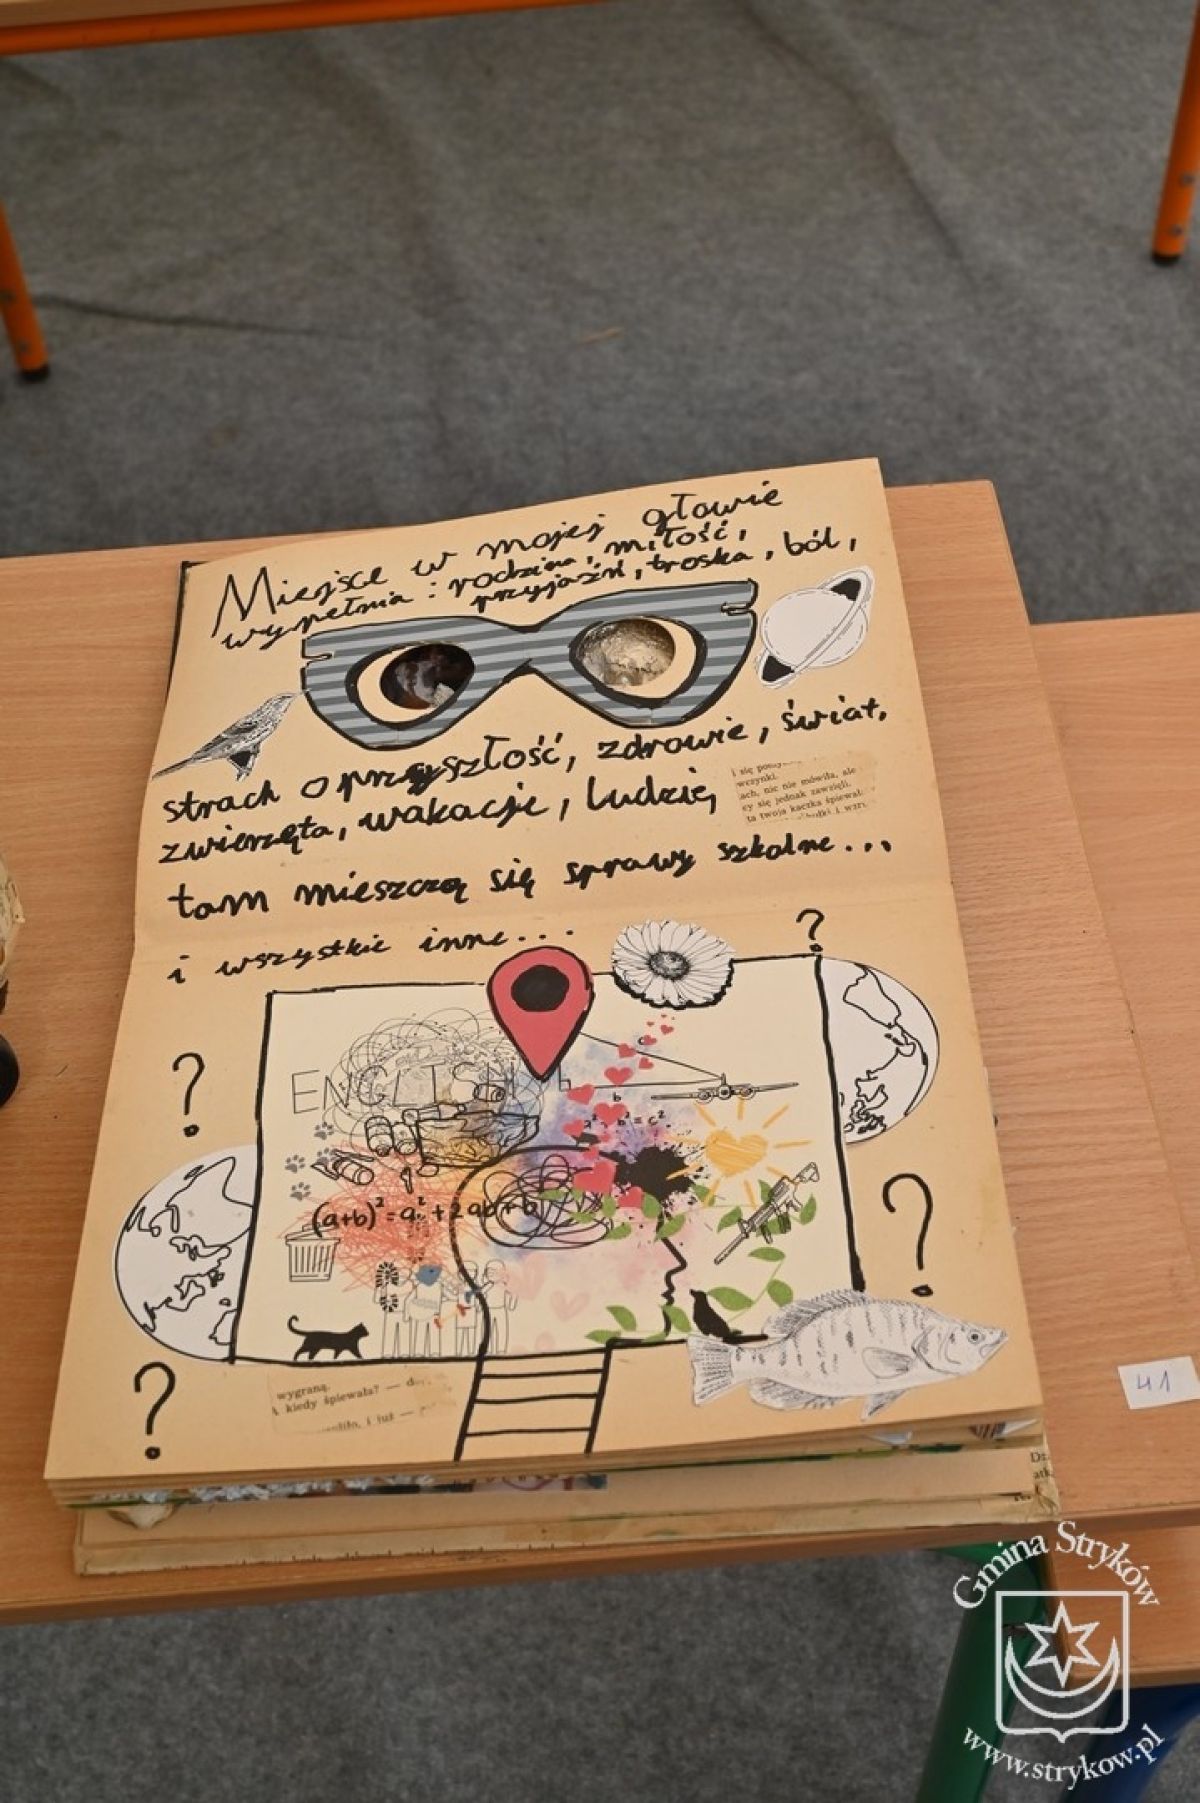 Miejsce w mojej głowie
wypełnia : rodzina, miłość,
przyjaźń, troska, ból,
strach o przyszłość, zdrowie, świat,
zwierzęta, wakacje, ludzie,
i się
wczynki.
ach, nic nie mówiła, ale
cy się jednak zawzięli.
ta twoja kaczka śpiewał
i wzru
tam mieszczą się sprawy szkolne...
i wszystkie inne...
?
?
ENGLISH
b
c
a² + b² = c²
(a+b)² = a² + 2ab + b
?
?
wygraną.
A kiedy śpiewała? —
i już —
41
Gmina Stryków
www.strykow.pl